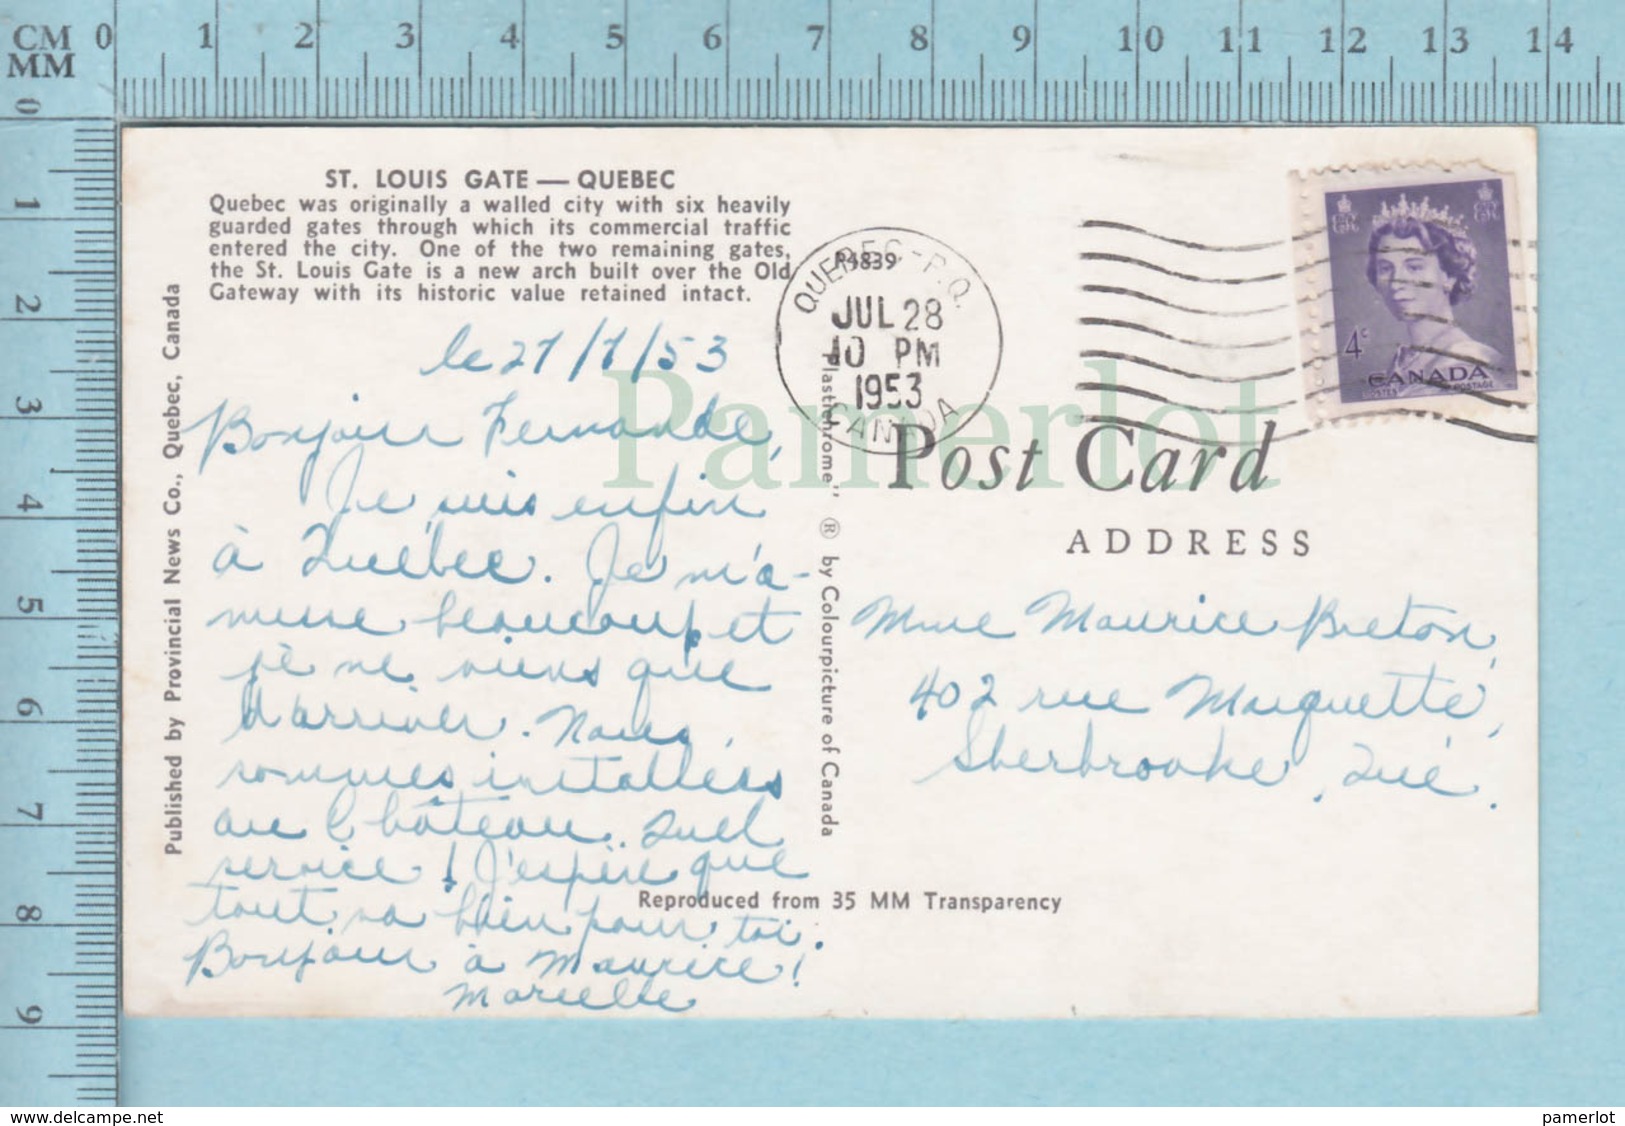 CM 0 1 2 3 4 5 6 7 8 9 10 11 12 13 14
MM
0 1 2 3 4 5 6 7 8 9
ST. LOUIS GATE — QUEBEC
Quebec was originally a walled city with six heavily
guarded gates through which its commercial traffic
entered the city. One of the two remaining gates,
the St. Louis Gate is a new arch built over the Old
Gateway with its historic value retained intact.
Published by Provincial News Co., Quebec, Canada
le 27/7/53
Bonjour Fernande,
Je suis enfin
à Québec. Je m'a-
muse beaucoup et
je ne viens que
d'arriver. Nous
sommes installées
au Château. Quel
service! J'espère que
tout va bien pour toi.
Bonjour à Maurice!
Marielle
P4839
QUEBEC-P.Q.
JUL 28
10 PM
1953
CANADA
Plastichrome" ® by Colourpicture of Canada
4c
CANADA
POSTES POSTAGE
Pamerlot
Post Card
ADDRESS
Mme Maurice Breton,
402 rue Marquette,
Sherbrooke, Qué.
Reproduced from 35 MM Transparency
www.delcampe.net
pamerlot